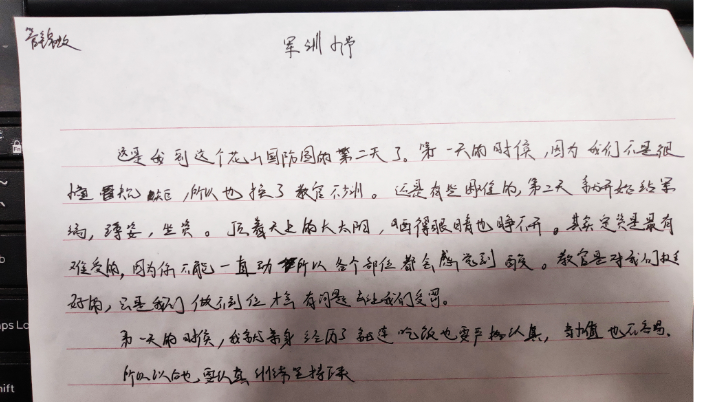 军训感
这是我到这个花山国防园的第二天了。第一天的时候,因为我们不是很
懂 ,所以也挨了教官不少训。还是有些困难的,第二天我开始练军
,蹲姿,坐姿。顶着天上的大太阳,晒得眼睛也睁不开。其实定姿是最有
难受的,因为你不能一直动 所以各个部位都会感觉到酸。教官是对我们挺
好的,只是我们做不到位才会有问题 让我们受罚。
第一天的时候,我就亲身经历了就连吃饭也要严格认真, 也不容易.
所以以后也要认真训练坚持